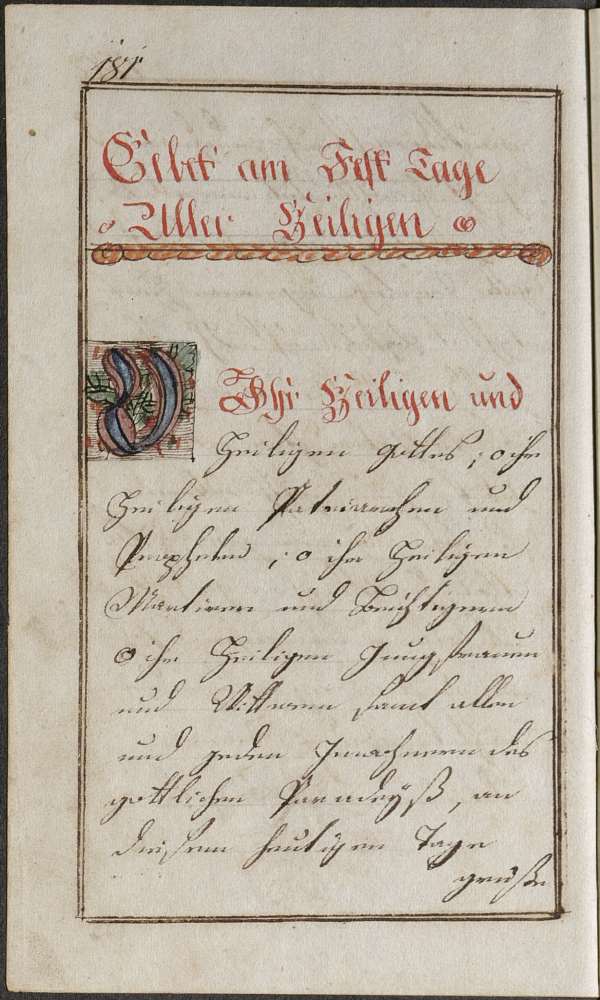 181
Gebet am Fest Tage
Aller Heiligen
O Ihr Heiligen und
Heiligen Gottes; o ihr
Heiligen Patriarchen und
Propheten; o ihr Heiligen
Martirer und Beichtigern
o ihr Heiligen Jungfrauen
und Wittwen samt allen
und jeden Inwohnern des
gottlichen Paradeyß, an
diesem heutigen Tage
grüße